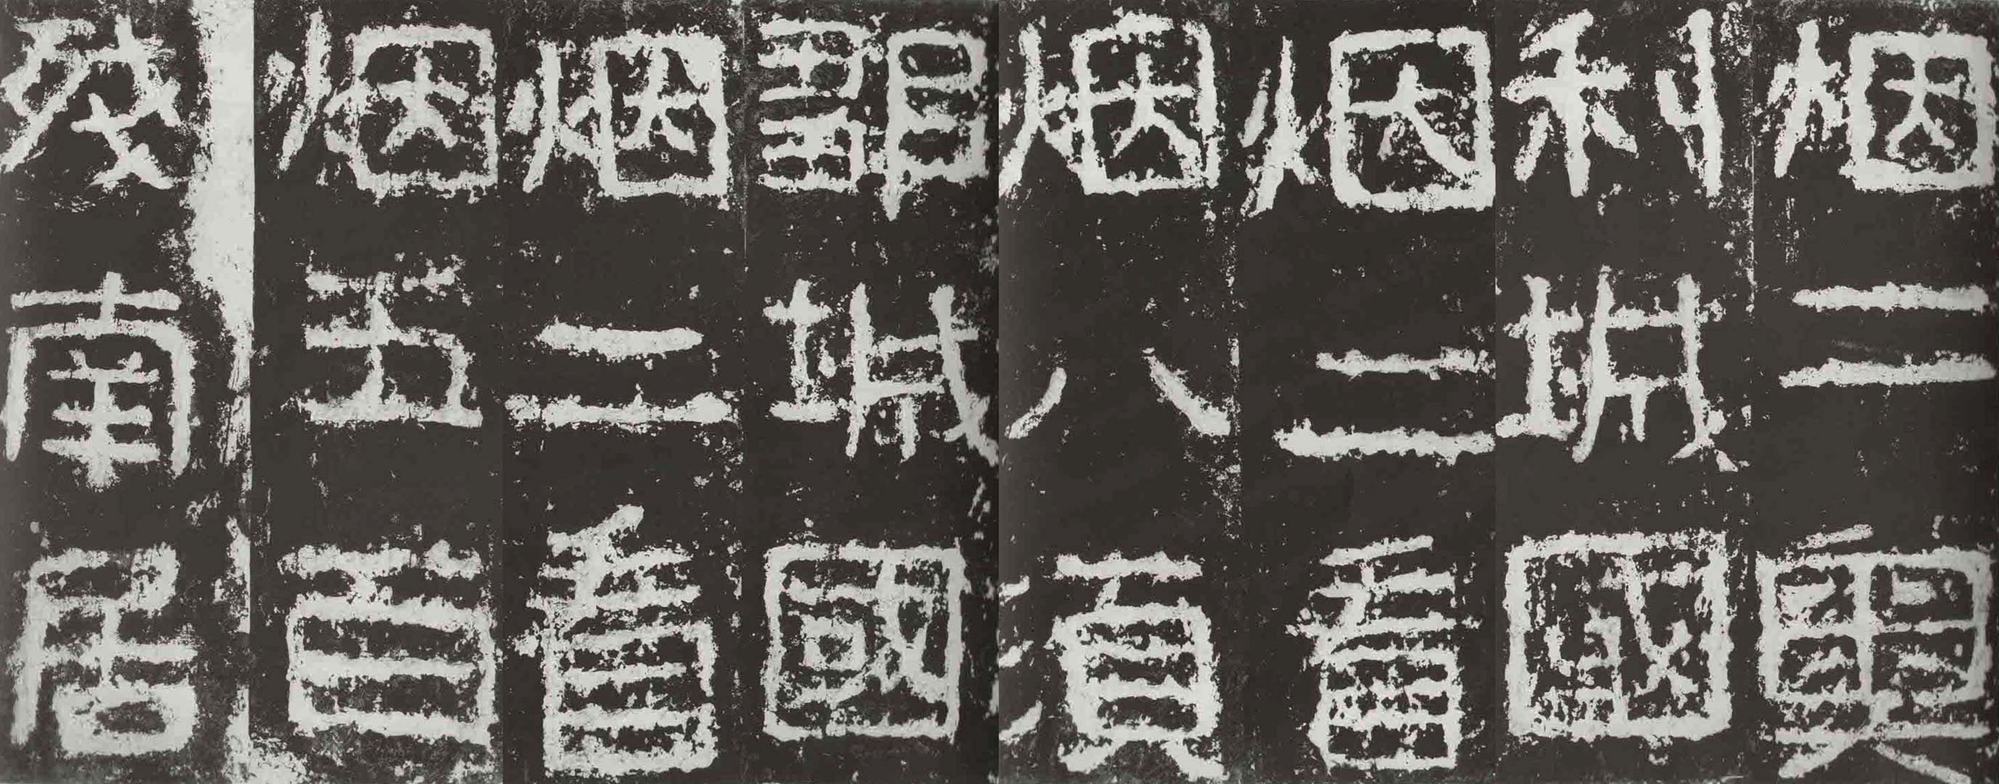 烟二奧
利城國
烟二看
烟八須
鄒城國
烟二看
烟五百
殘南居